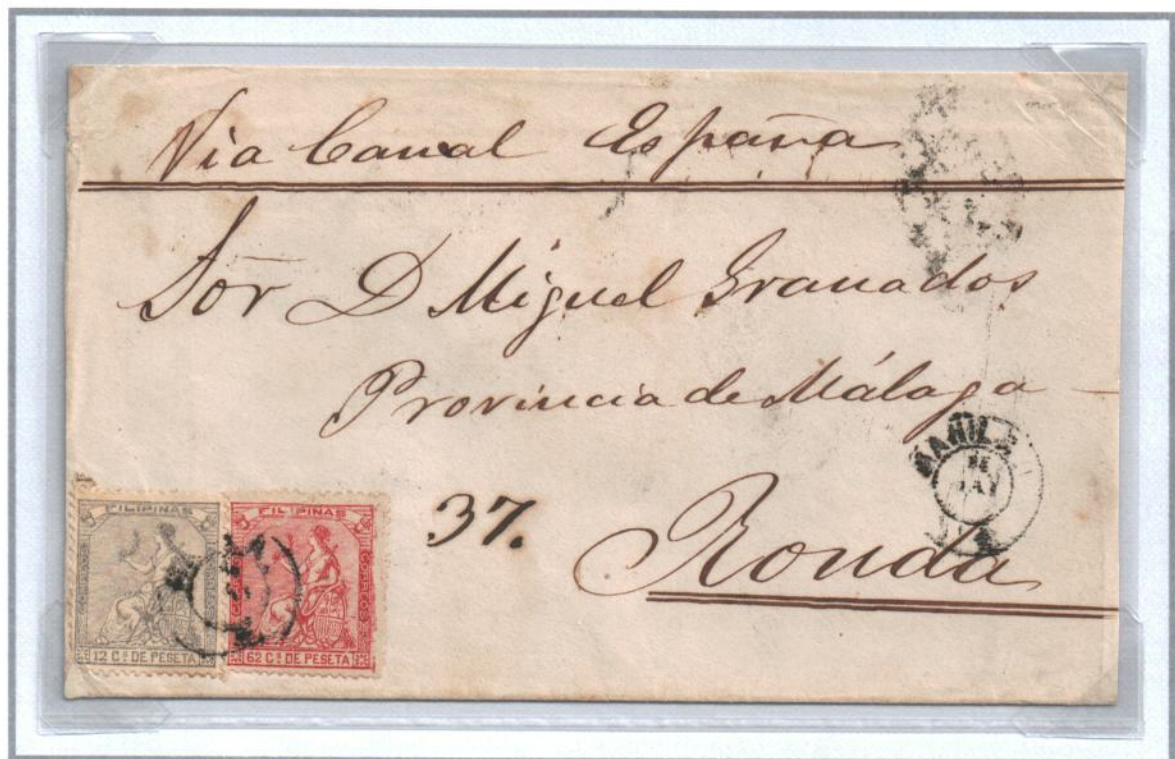 Via Canal España
Sor D Miguel Granados
Provincia de Málaga
MANILA
37.
Ronda
FILIPINAS
12 Cs DE PESETA
FILIPINAS
CORREOS
62 Cs DE PESETA